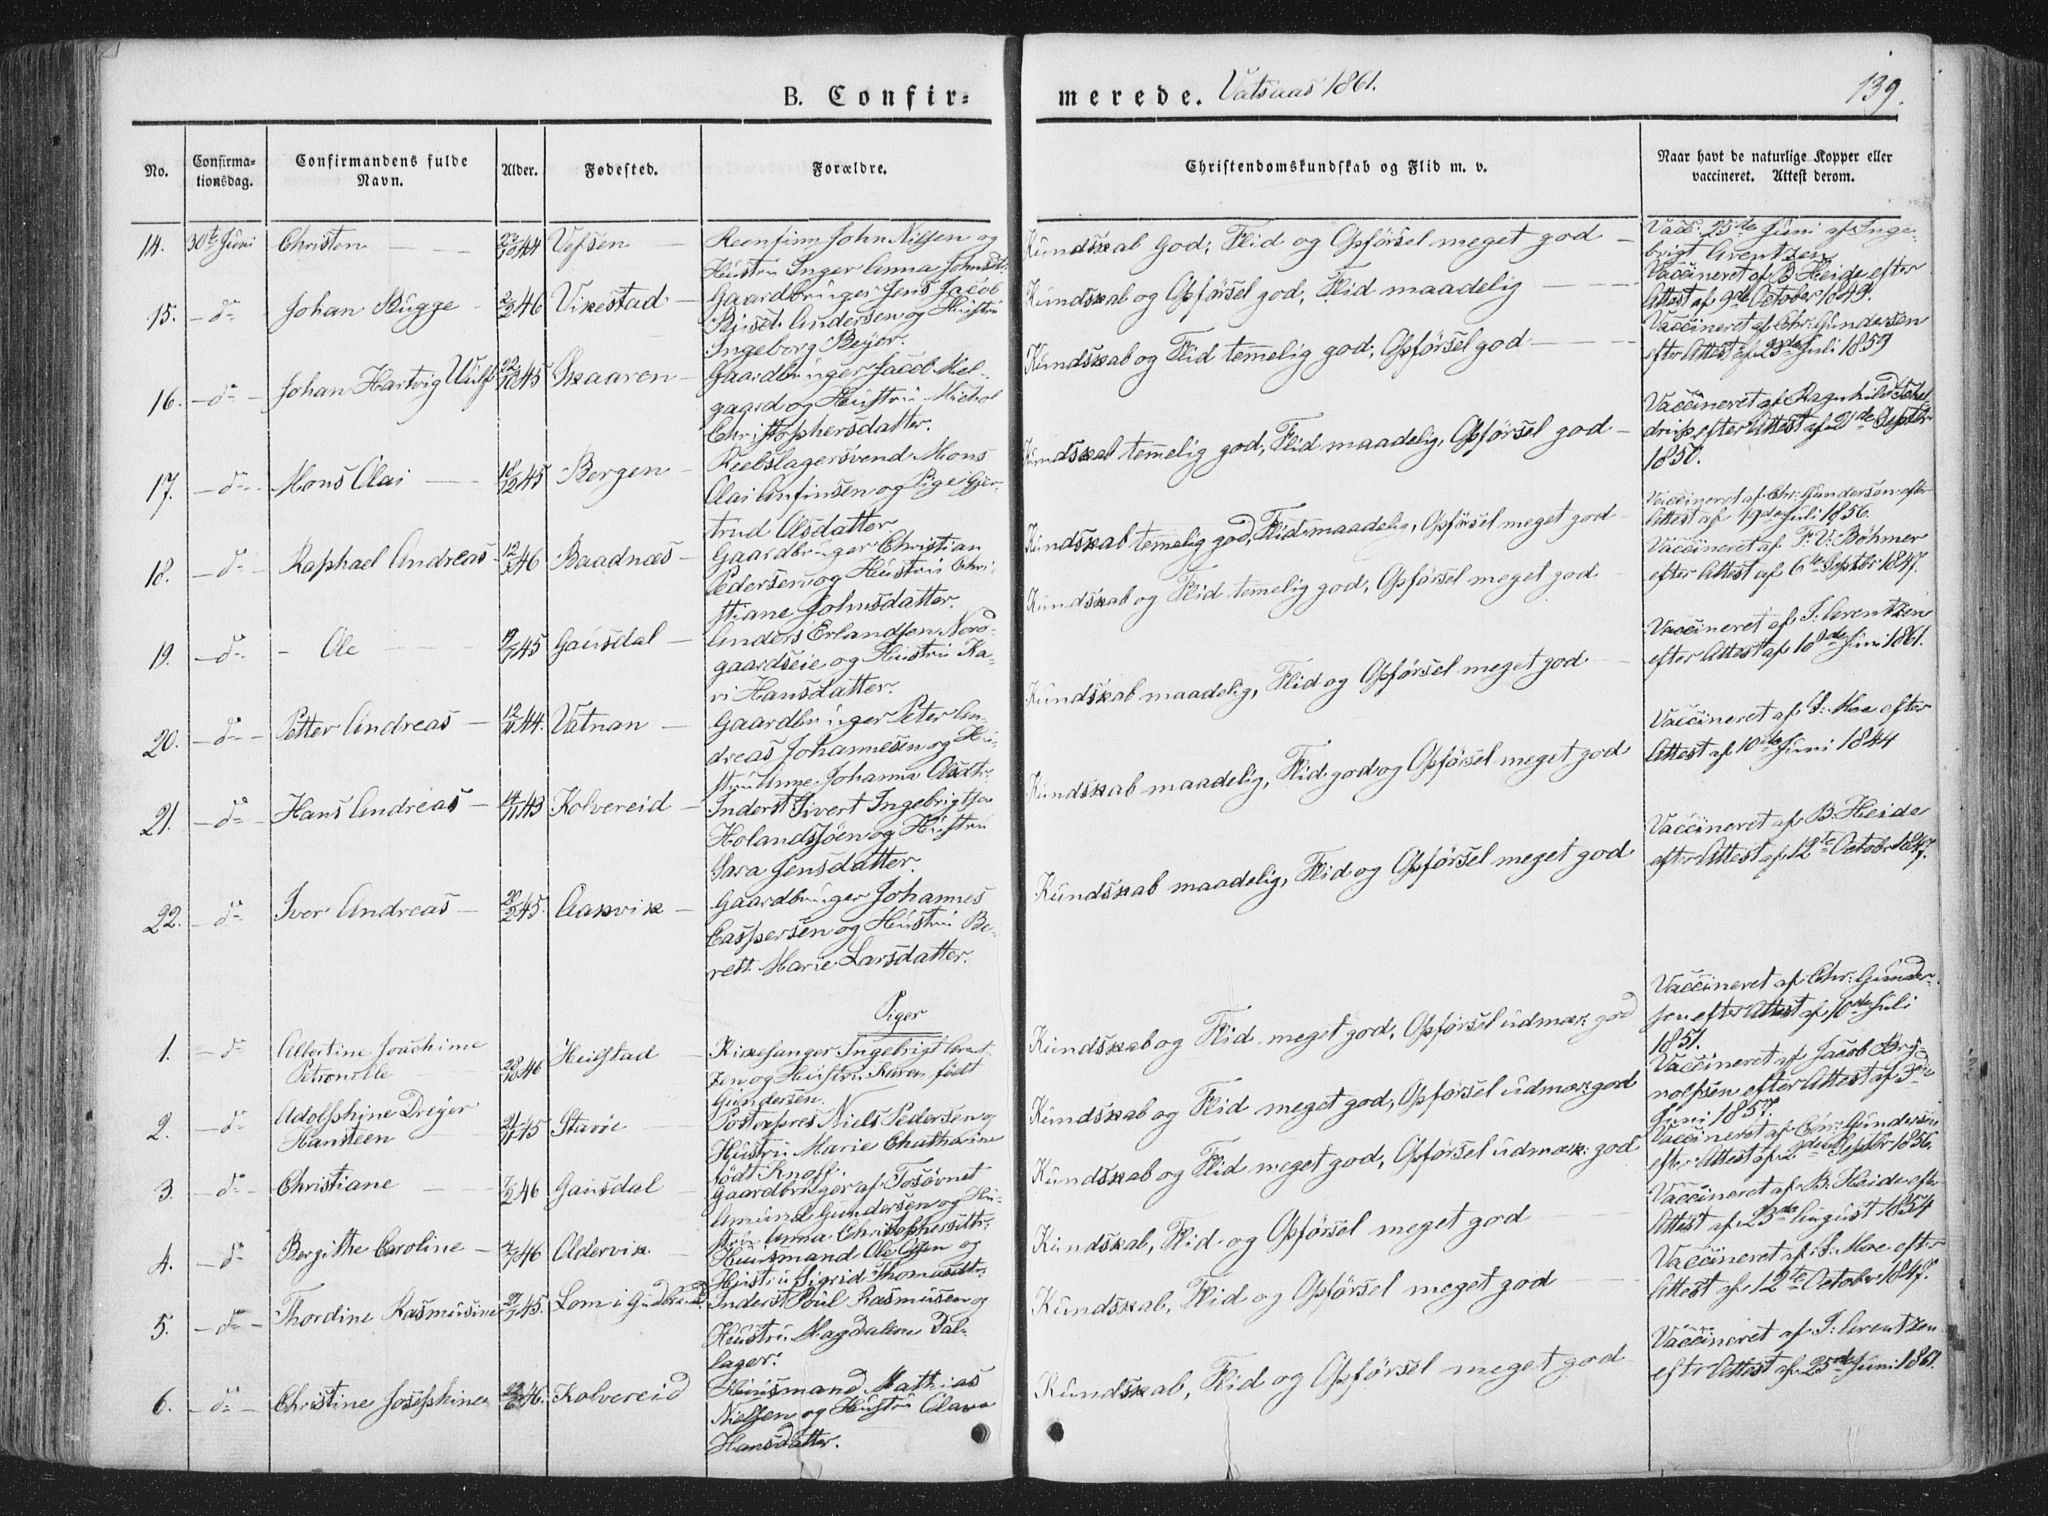 B. Confir-
merede. Vatsaas 1861.
139.
No.
Confirma-
tionsdag.
Confirmandens fulde
Navn.
Alder.
Fødested.
Forældre.
Christendomskundskab og Flid m. v.
Naar havt de naturlige Kopper eller
vaccineret. Attest derom.
14. 30te Juni Christen 44 Vefsen
Reenfinn John Nilsen og
Hustru Inger Anna Johnsdt.
Kundskab God; Flid og Opførsel meget god
Vacc. 25de Juni af Inge-
brigt Arentzen
15. do Johan Bugge 46 Vikestad
Gaardbruger Jens Jacob
Andersen og Hustru
Ingeborg Beyer.
Kundskab og Opførsel god, Flid maadelig
Vaccineret af B. Heide efter
Attest af 9de October 1849.
16. do Johan Hartvig 22/10 45 Skaaren
Gaardbruger Jacob Mel-
gaard og Hustru Michol
Christophersdatter.
Kundskab og Flid temelig god, Opførsel god
Vaccineret af Chr. Gundersen
efter Attest af Juli 1859
17. do Mons Olai 18/12 45 Bergen
Reebslagersvend Mons
Olai Anfinsen og Pige Gjer-
trud Olsdatter
Kundskab temelig god, Flid maadelig, Opførsel god
Vaccineret af Ragnhild
efter Attest af 21de Septbr
1850.
18. do Raphael Andreas 46 Baadnæs
Gaardbruger Christian
Pedersen og Hustru Chri-
stiane Johnsdatter.
Kundskab temelig god, Flid maadelig, Opførsel meget god
Vaccineret af Chr. Gundersen efter
Attest af 19de Juli 1856.
19. do Ole 45 Gausdal
Anders Erlandsen Nord-
gaardseie og Hustru Ka-
ri Hansdatter.
Kundskab og Flid temelig god, Opførsel meget god
Vaccineret af F. V. Bøhmer
efter Attest af 6te Septbr 1847.
20. do Petter Andreas 44. Vatnan
Gaardbruger Peter An-
dreas Johannesen og Hu-
stru Anne Johanna Olsdtr.
Kundskab maadelig, Flid og Opførsel meget god
Vaccineret af I. Arentzen
efter Attest af 18de Juni 1861.
21. do Hans Andreas 43 Kolvereid
Inderst Sivert Ingebrigtsen
Holandsjøen og Hustru
Sara Jensdatter.
Kundskab maadelig, Flid god og Opførsel meget god
Vaccineret af I. Moe efter
Attest af 10de Juni 1844
22. do Iver Andreas 45. Aakvik
Gaardbruger Johannes
Caspersen og Hustru Be-
rett Marie Larsdatter.
Kundskab maadelig, Flid og Opførsel meget god
Vaccineret af B. Heide
efter Attest af 12te Octobr 1847.
Piger
1. do Albertine Joachime
Petronelle 28/10 46 Heilstad
Kirkesanger Ingebrigt Arent-
zen og Hustru Karen født
Gundersen.
Kundskab og Flid meget god, Opførsel udmær: god
Vaccineret af Chr. Gunder-
sen efter Attest af 10de Juli
1851.
2. do Adolphine Dreyer
Hansteen 21/11 45 Stavøe
Postexpres Niels Pedersen og
Hustru Marie Chatharine
født Knoff.
Kundskab og Flid meget god, Opførsel udmær: god
Vaccineret af Jacob Bry-
nolfsen efter Attest af 3die
Juni 1857.
3. do Christiane 46 Gausdal
Gaardbruger af Tosøvnet
Amund Gundersen og Hu-
stru Anna Christophersdtr.
Kundskab og Flid meget god, Opførsel udmær: god
Vaccineret af Chr. Gundersen
efter Attest af 2den Septbr 1856.
4. do Bergithe Caroline 46 Aldervik
Huusmand Ole Olsen og
Hustru Sigrid Thomasdtr.
Kundskab, Flid og Opførsel meget god
Vaccineret af B. Heide eftr
Attest af 23de August 1854
5. do Thordine Rasmusine 45. Lom i Gudbrand.
Inderst Poul Rasmusen og
Hustru Magdalene Dal-
lager.
Kundskab, Flid og Opførsel meget god
Vaccineret af I. Moe efter
Attest af 12te October 1847.
6. do Christine Josephine 46. Kolvereid
Huusmand Mathias
Nielsen og Hustru Olava
Hansdatter.
Kundskab, Flid og Opførsel meget god
Vaccineret af I. Arentzen
efter Attest af 25de Juni 1861.